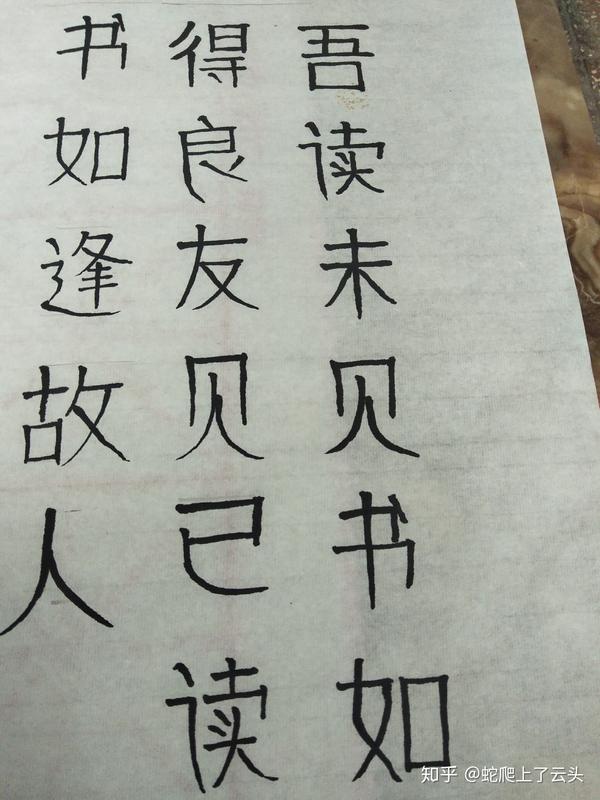 吾读未见书如
得良友见已读
书如逢故人
知乎 @蛇爬上了云头